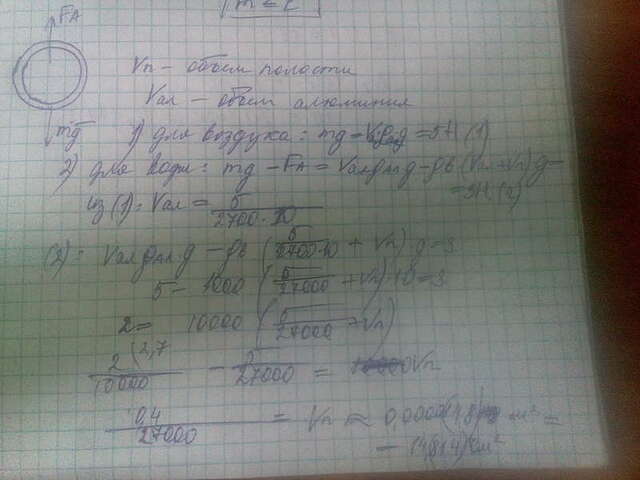 m = ?
FA
mg
Vп – объем полости
Vал – объем алюминия
1) для воздуха: mg = = 5Н (1)
2) для воды: mg – FA = Vал ρал g – ρв (Vал + Vп) g =
= 3Н (2)
из (1): Vал = 5 / 2700·10
(2): Vал ρал g – ρв (5 / 2700·10 + Vп) g = 3
5 – 1000 (5 / 27000 + Vп) 10 = 3
2 = 10000 (5 / 27000 + Vп)
2 (2,7 / 10000 – 5 / 27000 = Vп
0,4 / 27000 = Vп ≈